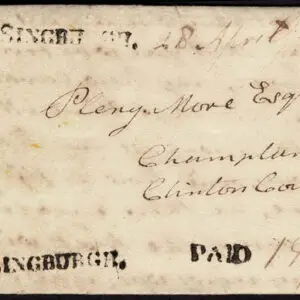 SINGBURGH. 28 April
Pleny More Esq
Champlain
Clinton Cou
SINGBURGH. PAID 19